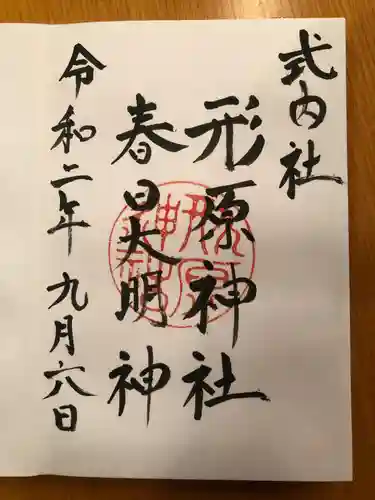 式内社
形原神社
春日大明神
令和二年九月六日
形原
神社